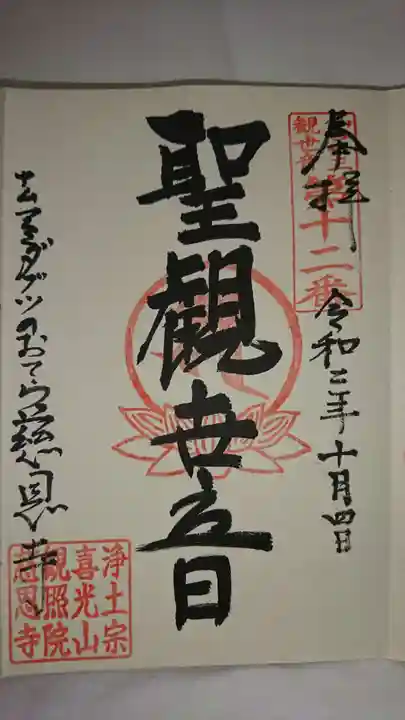 奉拝
観世音
第十二番
令和三年十月四日
聖観世音
アマダゲツのおてら慈恩寺
浄土宗
喜光山
観照院
慈恩寺